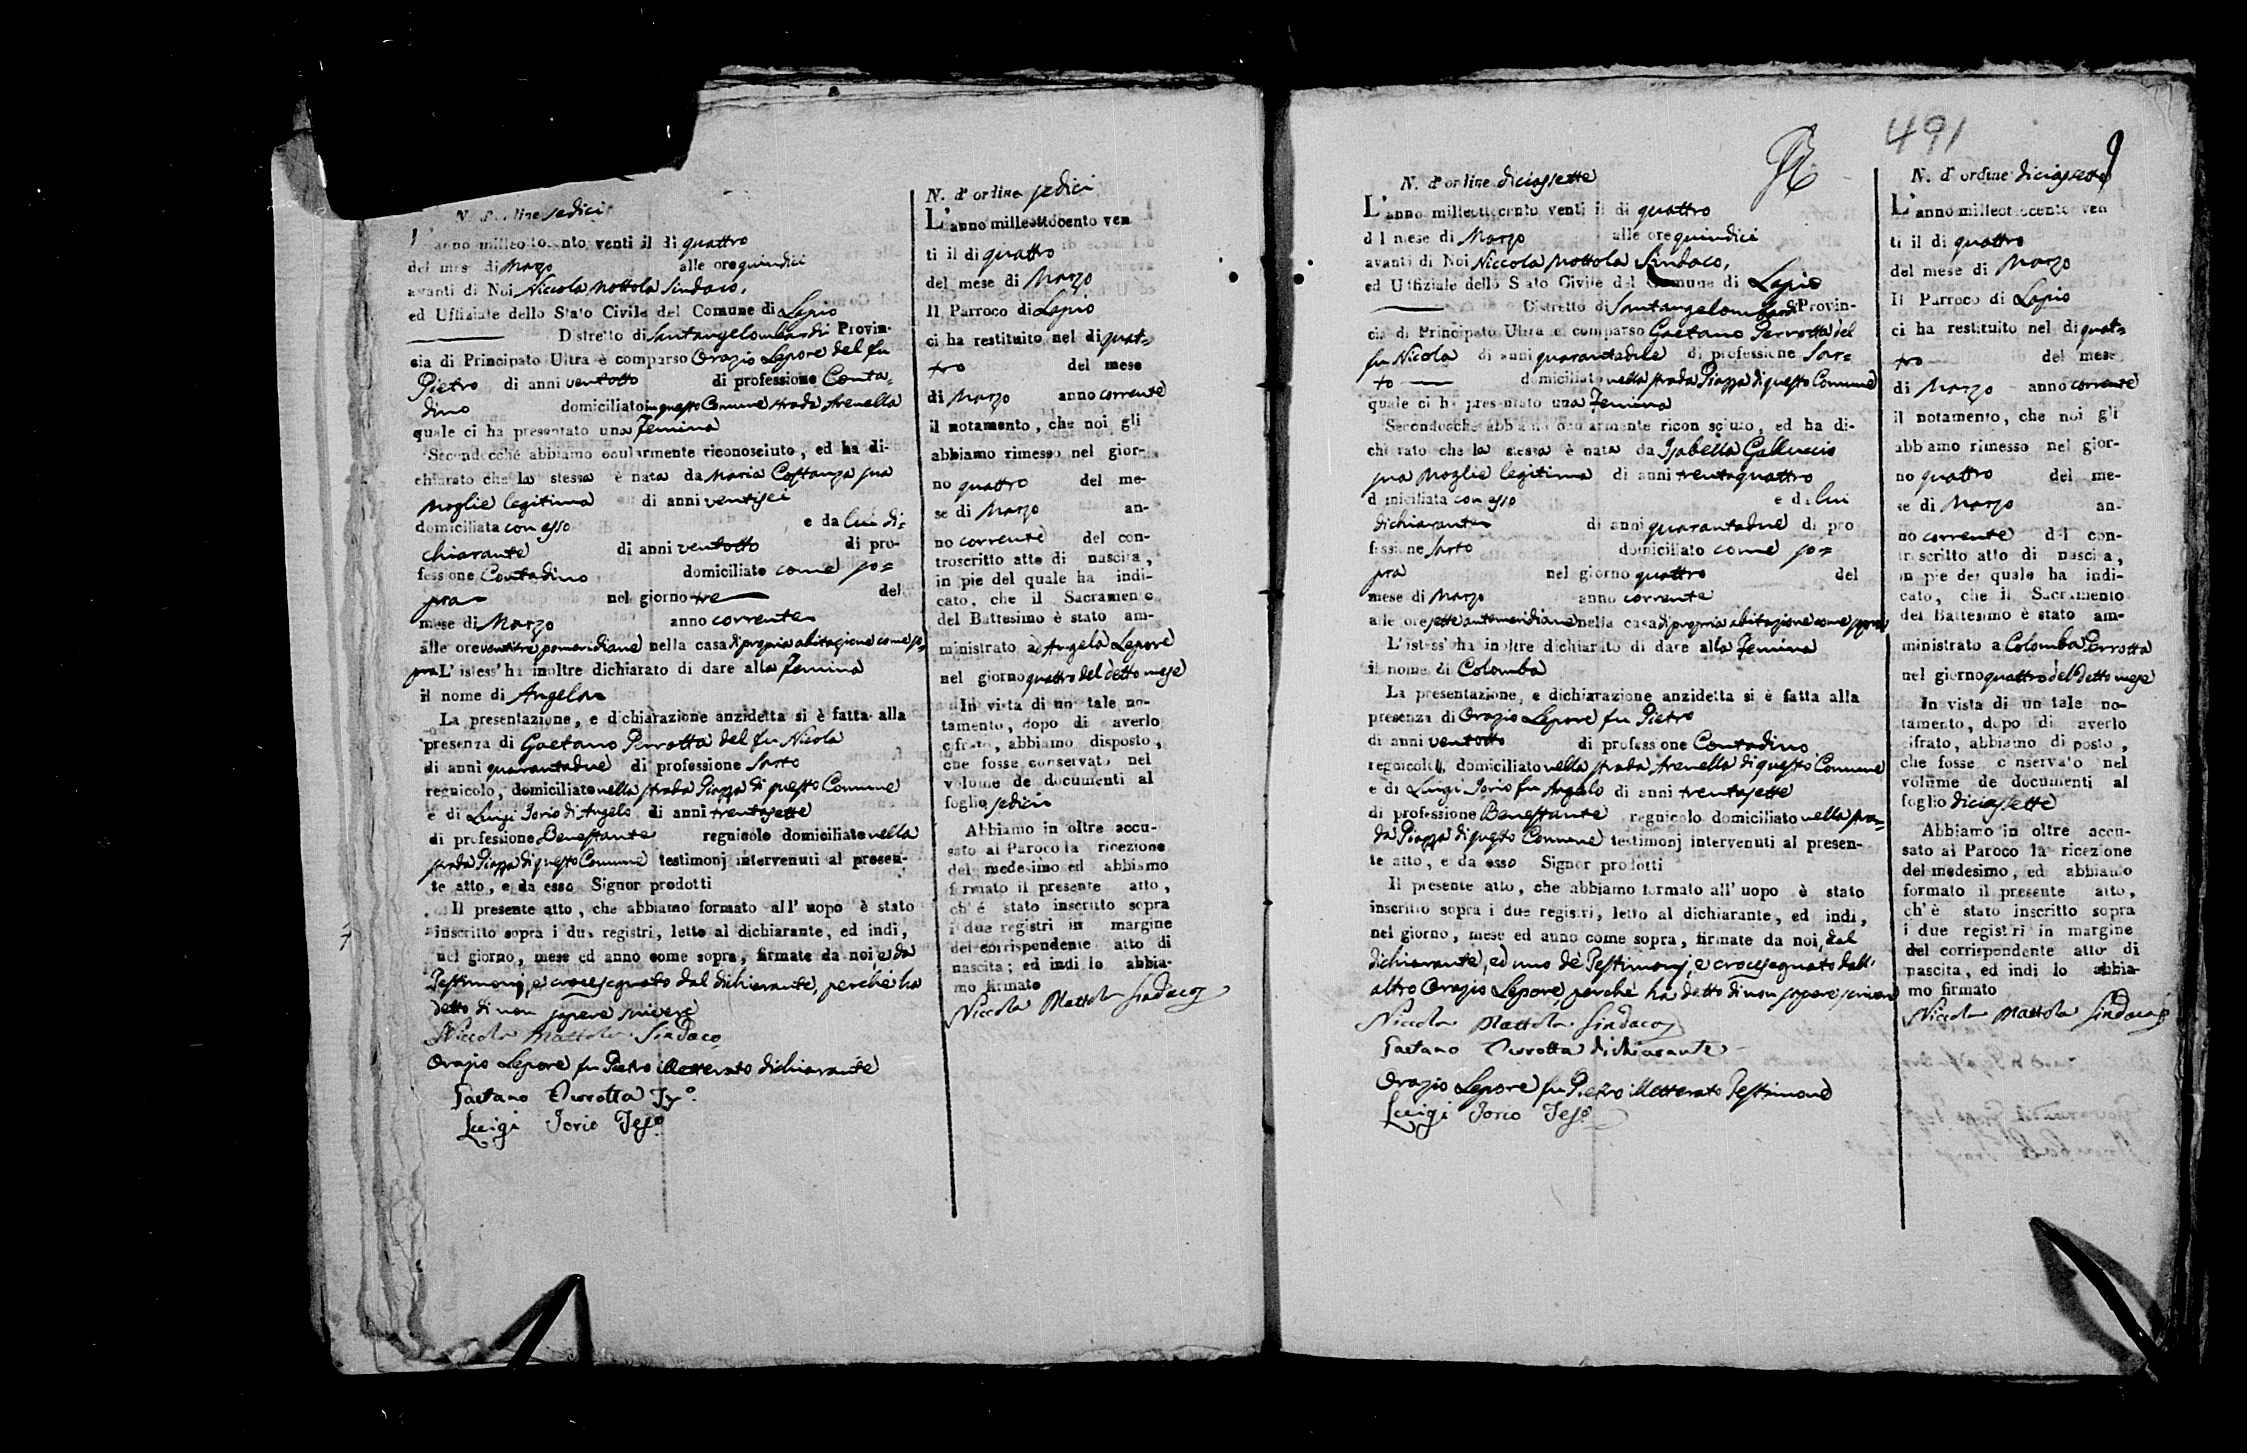 N. d'ordine sedici
L'anno milleottocento venti il di quattro
del mese di Marzo alle ore quindici
avanti di Noi Niccola Mottola Sindaco,
ed Uffiziale dello Stato Civile del Comune di Lapio
Distretto di Santangelombardi Provin-
cia di Principato Ultra è comparso Orazio Lepore del fu
Pietro di anni ventotto di professione Conta-
dino domiciliato in questo Comune strada Arenella
quale ci ha presentato una Femina
Secondocché abbiamo ocularmente riconosciuto, ed ha di-
chiarato che la stessa è nata da Maria Costanza sua
Moglie legitima di anni ventisei
domiciliata con esso e da lui di-
chiarante di anni ventotto di pro-
fessione Contadino domiciliato come so-
pra nel giorno tre del
mese di Marzo anno corrente
alle ore ventitre pomeridiane nella casa di propria abitazione come so-
pra L'istess' ha inoltre dichiarato di dare alla Femina
il nome di Angela
La presentazione, e dichiarazione anzidetta si è fatta alla
presenza di Gaetano Perrotta del fu Nicola
di anni quarantadue di professione Sarto
regnicolo, domiciliato nella strada Piazza di questo Comune
e di Luigi Iorio di Angelo di anni trentasette
di professione Benestante regnicolo domiciliato nella
strada Piazza di questo Comune testimonj intervenuti al presen-
te atto, e da esso Signor prodotti
Il presente atto, che abbiamo formato all' uopo è stato
inscritto sopra i due registri, letto al dichiarante, ed indi,
nel giorno, mese ed anno come sopra, firmate da noi, e da
Testimonj, e crocesegnato dal dichiarante, perchè ha
detto di non sapere scrivere
Niccola Mattola Sindaco
Orazio Lepore fu Pietro illetterato dichiarante
Gaetano Perrotta Tes°.
Luigi Iorio Tes°.
N. d'ordine sedici
L'anno milleottocento ven
ti il di quattro
del mese di Marzo
Il Parroco di Lapio
ci ha restituito nel di quat-
tro del mese
di Marzo anno corrente
il notamento, che noi gli
abbiamo rimesso nel gior-
no quattro del me-
se di Marzo an-
no corrente del con-
troscritto atto di nascita,
in pie del quale ha indi-
cato, che il Sacramento
del Battesimo è stato am-
ministrato a Angela Lepore
nel giorno quattro del detto mese
In vista di un tale no-
tamento, dopo di averlo
cifrato, abbiamo disposto,
che fosse conservato nel
volume de documenti al
foglio sedici
Abbiamo in oltre accu-
sato al Paroco la ricezione
del medesimo ed abbiamo
formato il presente atto,
ch'é stato inscritto sopra
i due registri in margine
del corrispondente atto di
nascita; ed indi lo abbia-
mo firmato
Niccola Mattola Sindaco
491
N. d'ordine diciassette
L'anno milleottocento venti il di quattro
del mese di Marzo alle ore quindici
avanti di Noi Niccola Mottola Sindaco,
ed Uffiziale dello Stato Civile del Comune di Lapio
Distretto di Santangelombardi Provin-
cia di Principato Ultra è comparso Gaetano Perrotta del
fu Nicola di anni quarantadue di professione Sar-
to domiciliato nella strada Piazza di questo Comune
quale ci ha presentato una Femina
Secondocchè abbiamo ocularmente riconosciuto, ed ha di-
chiarato che la stessa è nata da Isabella Galluccio
sua Moglie legitima di anni trentaquattro
domiciliata con esso e da lui
dichiarante di anni quarantadue di pro
fessione Sarto domiciliato come so-
pra nel giorno quattro del
mese di Marzo anno corrente
alle ore sette antemeridiane nella casa di propria abitazione come sopra
L'istess' ha inoltre dichiarato di dare alla Femina
il nome di Colomba
La presentazione, e dichiarazione anzidetta si è fatta alla
presenza di Orazio Lepore fu Pietro
di anni ventotto di professione Contadino
regnicolo, domiciliato nella strada Arenella di questo Comune
e di Luigi Iorio fu Angelo di anni trentasette
di professione Benestante regnicolo domiciliato nella stra-
da Piazza di questo Comune testimonj intervenuti al presen-
te atto, e da esso Signor prodotti
Il presente atto, che abbiamo formato all' uopo è stato
inscritto sopra i due registri, letto al dichiarante, ed indi,
nel giorno, mese ed anno come sopra, firmate da noi, dal
dichiarante, ed uno de Testimonj, e crocesegnato dall'
altro Orazio Lepore, perchè ha detto di non sapere scrivere
Niccola Mattola Sindaco
Gaetano Perrotta dichiarante
Orazio Lepore fu Pietro illetterato Testimone
Luigi Iorio Tes°.
N. d'ordine diciassette
L'anno milleottocento ven
ti il di quattro
del mese di Marzo
Il Parroco di Lapio
ci ha restituito nel di quat-
tro del mese
di Marzo anno corrente
il notamento, che noi gli
abbiamo rimesso nel gior-
no quattro del me-
se di Marzo an-
no corrente del con-
troscritto atto di nascita,
in pie del quale ha indi-
cato, che il Sacramento
del Battesimo è stato am-
ministrato a Colomba Perrotta
nel giorno quattro del detto mese
In vista di un tale no-
tamento, dopo di averlo
cifrato, abbiamo disposto,
che fosse conservato nel
volume de documenti al
foglio diciassette
Abbiamo in oltre accu-
sato al Paroco la ricezione
del medesimo, ed abbiamo
formato il presente atto,
ch'è stato inscritto sopra
i due registri in margine
del corrispondente atto di
nascita, ed indi lo abbia-
mo firmato
Niccola Mattola Sindaco